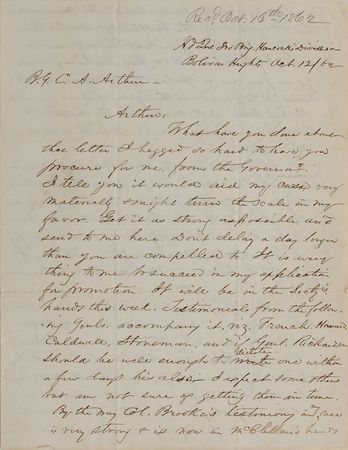 Recd. Oct. 16th 1862
Hd Qrs. 3d Brig. Hancock's Division
Bolivar Heights Oct. 12/62
B.G. C. A. Arthur
Arthur,
What have you done about
that letter I begged so hard to have you
procure for me, from the Governor?
I tell you it would aid my case very
materially & might turn the scale in my
favor. Get it as strong as possible and
send to me here. Don't delay a day longer
than you are compelled to. It is every
thing to me to succeed in my application
for promotion. It will be in the Secty's
hands this week. Testimonials from the follow-
ing Genls. accompany it, viz. French, Hancock
Caldwell, Stoneman, and if Genl. Richardson
should be well enough to dictate one within
a few days his also. I expect some others
but am not sure of getting them in time.
By the way Col. Brooke's testimony in
is very strong & is now in McClellan's hands